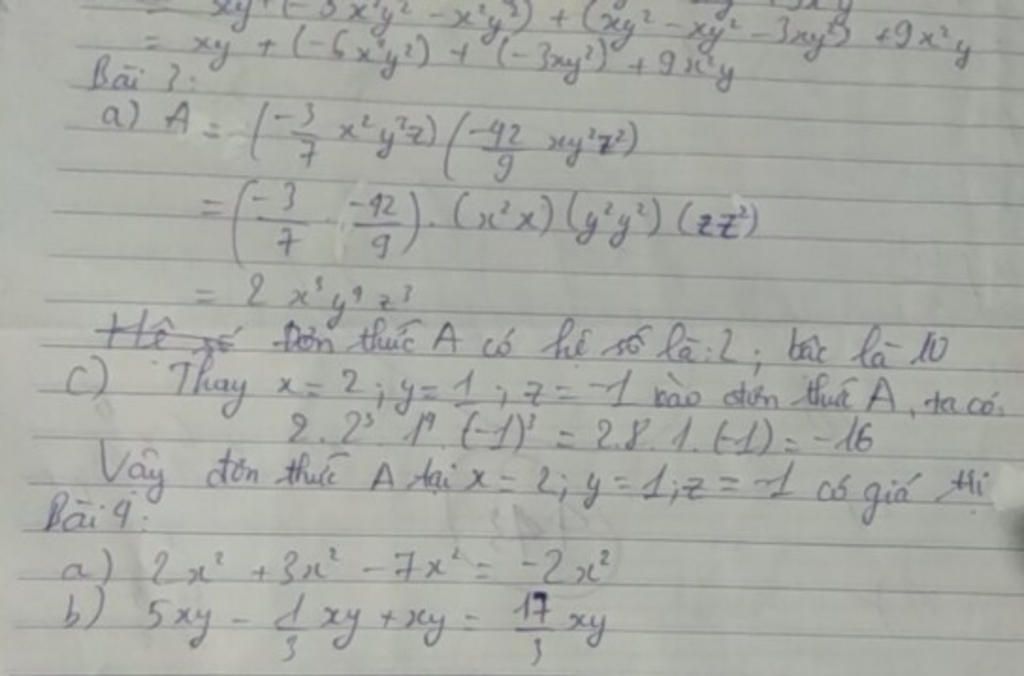 = xy + (-5x²y² - x²y²) + (xy² - xy² - 3xy²) + 9x²y
= xy + (-6x²y²) + (-3xy²) + 9x²y
Bài 3:
a) A = (-3/7 x²y²z) (-42/9 xy²z²)
= (-3/7 . -42/9) . (x²x) (y²y²) (zz²)
= 2 x³y⁴z³
Hệ số Đơn thức A có hệ số là: 2; bậc là 10
c) Thay x = 2; y = 1; z = -1 vào đơn thức A, ta có:
2 . 2³ . 1⁴ . (-1)³ = 2.8.1.(-1) = -16
Vậy đơn thức A tại x = 2; y = 1; z = -1 có giá trị
Bài 4:
a) 2x² + 3x² - 7x² = -2x²
b) 5xy - 1/3 xy + xy = 17/3 xy